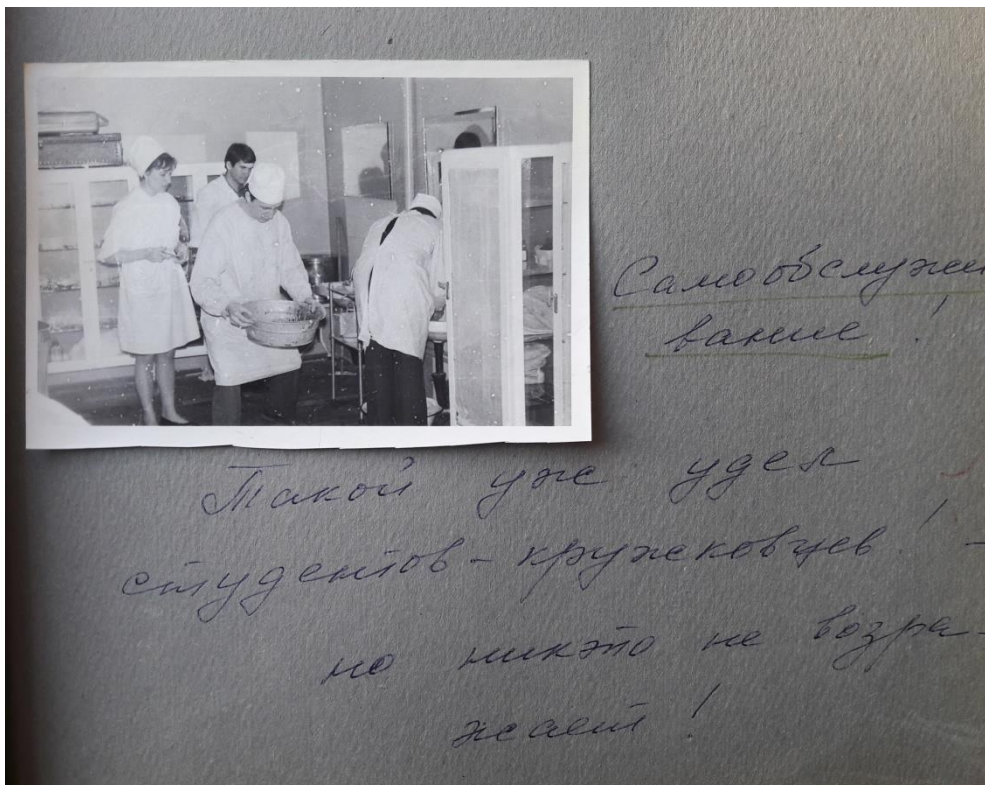 Самообслужи
вание!
Такой уж удел
студентов-кружковцев! -
но никто не возра-
жает!